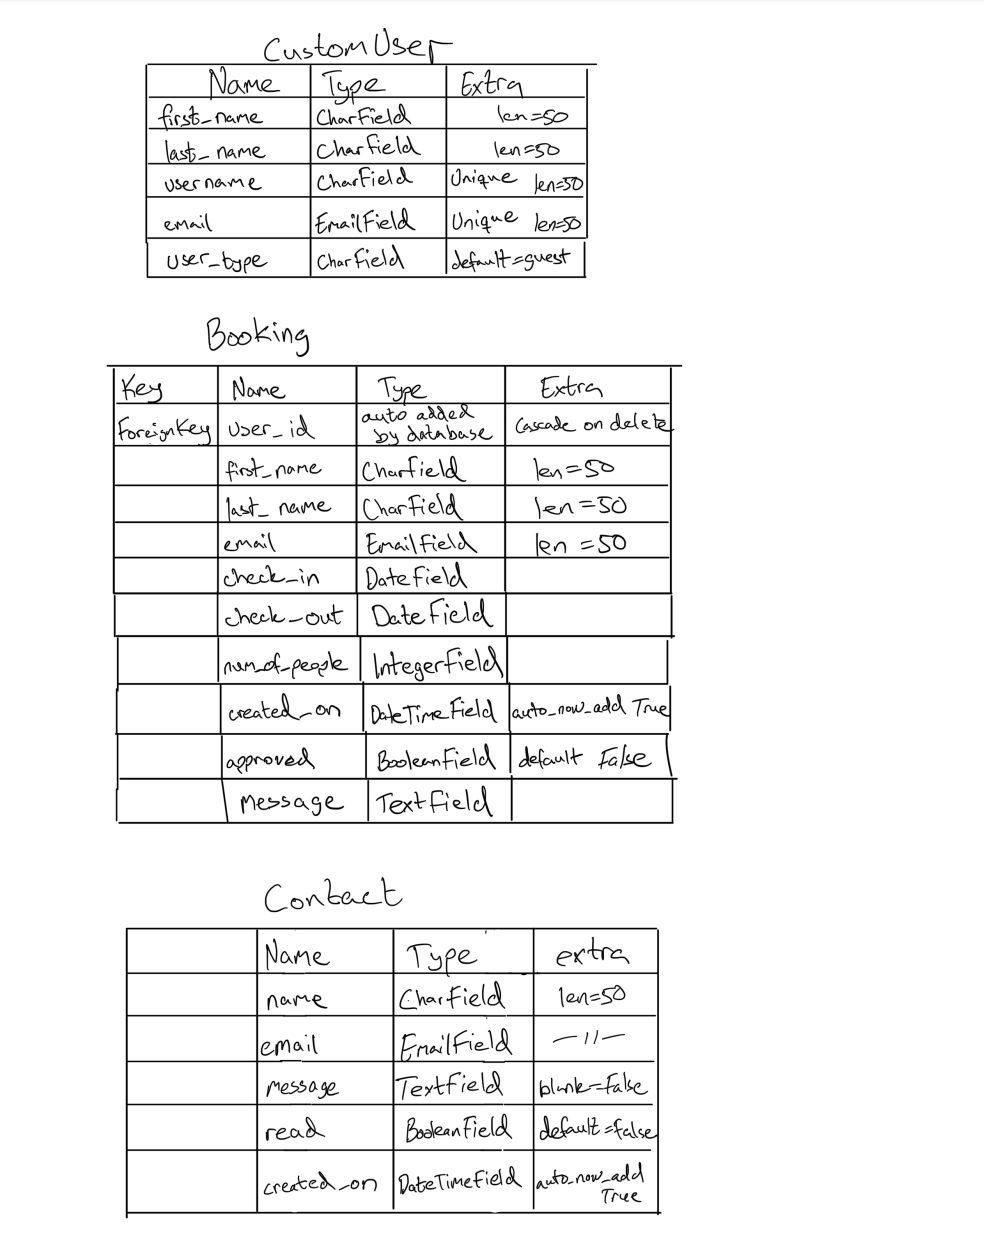 CustomUser
Name Type Extra
first_name CharField len=50
last_name CharField len=50
username CharField Unique len=50
email EmailField Unique len=50
user_type CharField default=guest
Booking
Key Name Type Extra
ForeignKey user_id auto added by database Cascade on delete
first_name CharField len=50
last_name CharField len=50
email EmailField len=50
check_in DateField
check_out DateField
num_of_people IntegerField
created_on DateTimeField auto_now_add True
approved BooleanField default False
message TextField
Contact
Name Type extra
name CharField len=50
email EmailField —//—
message TextField blank=False
read BooleanField default=false
created_on DateTimeField auto_now_add True